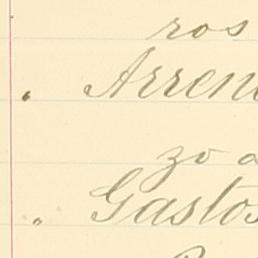 ros
" Arren
zo a
" Gastos